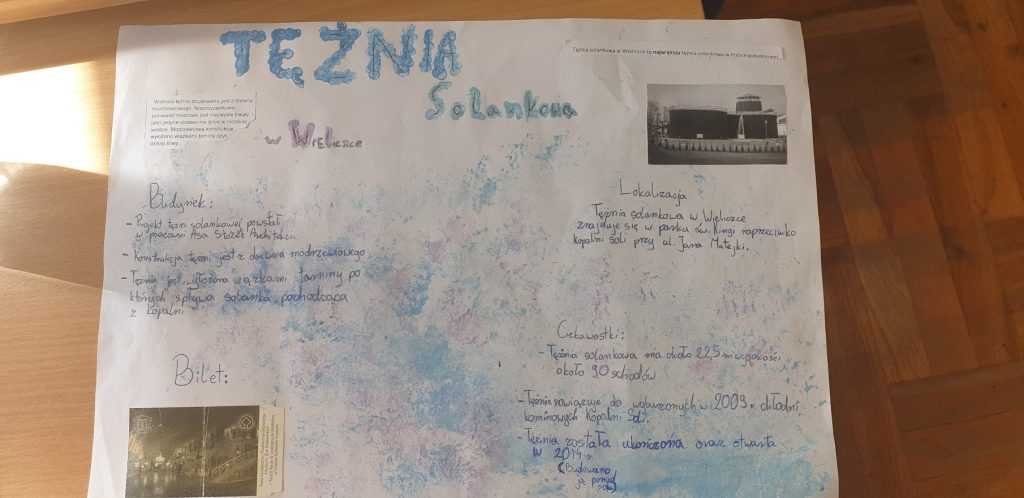 TĘŻNIA
Solankowa
w WIELICZCE
Tężnia solankowa w Wieliczce to największa tężnia solankowa w Polsce południowej!
Wielicka tężnia zbudowana jest z drewna
modrzewiowego. Nieprzypadkowo,
ponieważ modrzew jest niezwykle trwały i
jako jedyne drzewo nie gnije w morskiej
wodzie. Modrzewiową konstrukcję
wyłożono wiązkami tarniny czyli
dzikiej śliwy.
Budynek:
- Projekt tężni solankowej powstał
w pracowni Asa Studio Architekci
- Konstrukcja tężni jest z drewna modrzewiowego
- Tężnia jest wyłożona wiązkami tarniny po
których spływa solanka pochodząca
z kopalni
Bilet:
Lokalizacja
Tężnia solankowa w Wieliczce
znajduje się w parku św. Kingi naprzeciwko
Kopalni Soli przy ul. Jana Matejki.
Ciekawostki:
- Tężnia solankowa ma około 22,5 m wysokości
około 90 schodów
- Tężnia nawiązuje do wyburzonych w 2009 r. chłodni
kominowych Kopalni Soli.
- Tężnia została ukończona oraz otwarta
w 2014 r.
(Budowano
ją ponad